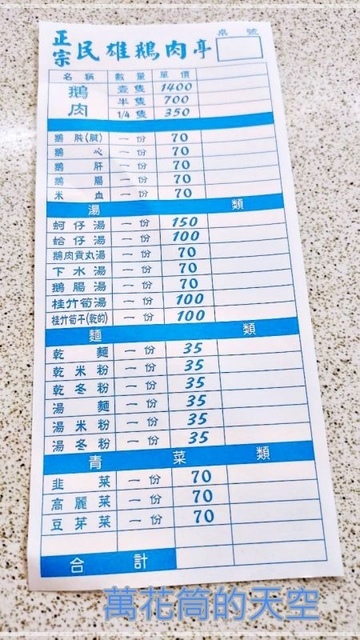 正宗民雄鵝肉亭 桌號
名稱 數量 單價
鵝肉 壹隻 1400
半隻 700
1/4隻 350
鵝肫(胘) 一份 70
鵝心 一份 70
鵝肝 一份 70
鵝腸 一份 70
米血 一份 70
湯類
蚵仔湯 一份 150
蛤仔湯 一份 100
鵝肉貢丸湯 一份 70
下水湯 一份 70
鵝腸湯 一份 70
桂竹筍湯 一份 100
桂竹筍干(乾的) 一份 100
麵類
乾麵 一份 35
乾米粉 一份 35
乾冬粉 一份 35
湯麵 一份 35
湯米粉 一份 35
湯冬粉 一份 35
青菜類
韭菜 一份 70
高麗菜 一份 70
豆芽菜 一份 70
合計
萬花筒的天空